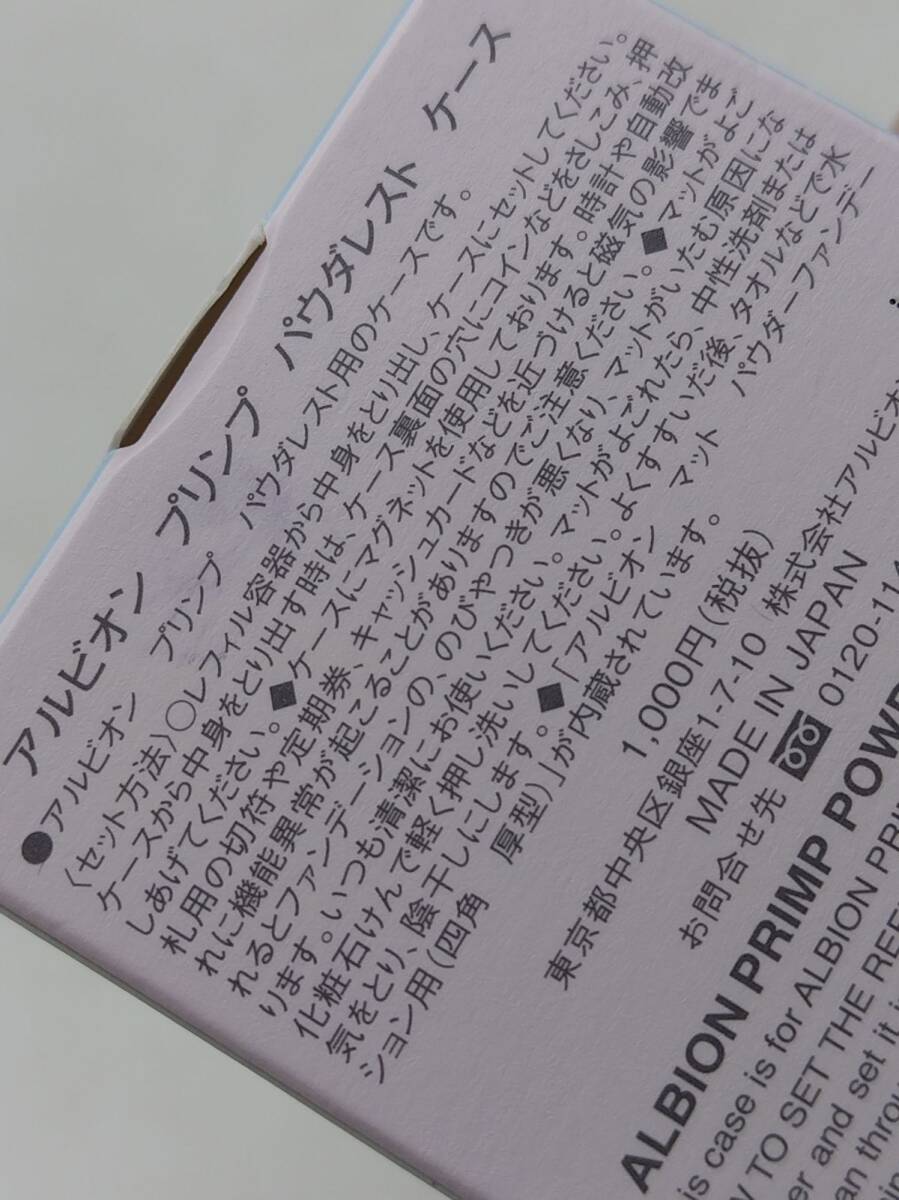 アルビオン プリンプ パウダレスト ケース
●アルビオン プリンプ パウダレスト用のケースです。
〈セット方法〉○レフィル容器から中身をとり出し、ケースにセットしてください。
ケースから中身をとり出す時は、ケース裏面の穴にコインなどをさしこみ、押
しあげてください。◆ケースにマグネットを使用しております。時計や自動改
札用の切符や定期券、キャッシュカードなどを近づけると磁気の影響でま
れに機能異常が起こることがありますのでご注意ください。◆マットがよご
れるとファンデーションの、のびやつきが悪くなり、マットがいたむ原因にな
ります。いつも清潔にお使いください。マットがよごれたら、中性洗剤または
化粧石けんで軽く押し洗いしてください。よくすすいだ後、タオルなどで水
気をとり、陰干しにします。◆「アルビオン マット パウダーファンデー
ション用(四角 厚型)」が内蔵されています。
1,000円(税抜)
東京都中央区銀座1-7-10 株式会社アルビオン
MADE IN JAPAN
お問合せ先 0120-114
ALBION PRIMP POW
is case is for ALBION PRI
TO SET THE REF
er and set it i
an throu